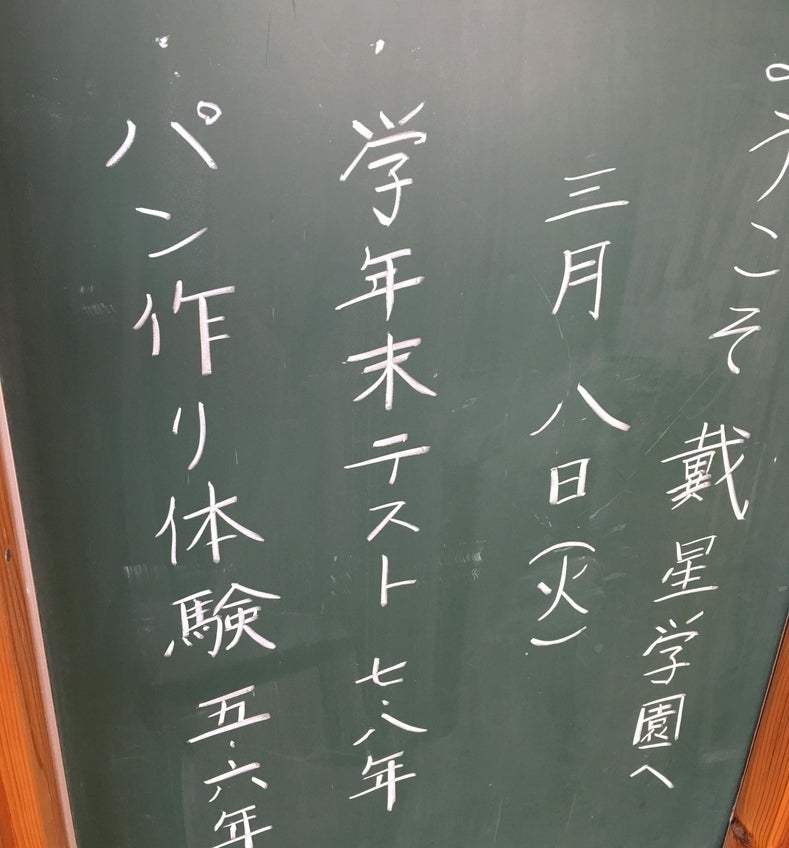 ようこそ 戴星学園へ
三月八日(火)
・学年末テスト 七・八年
・パン作り体験 五・六年